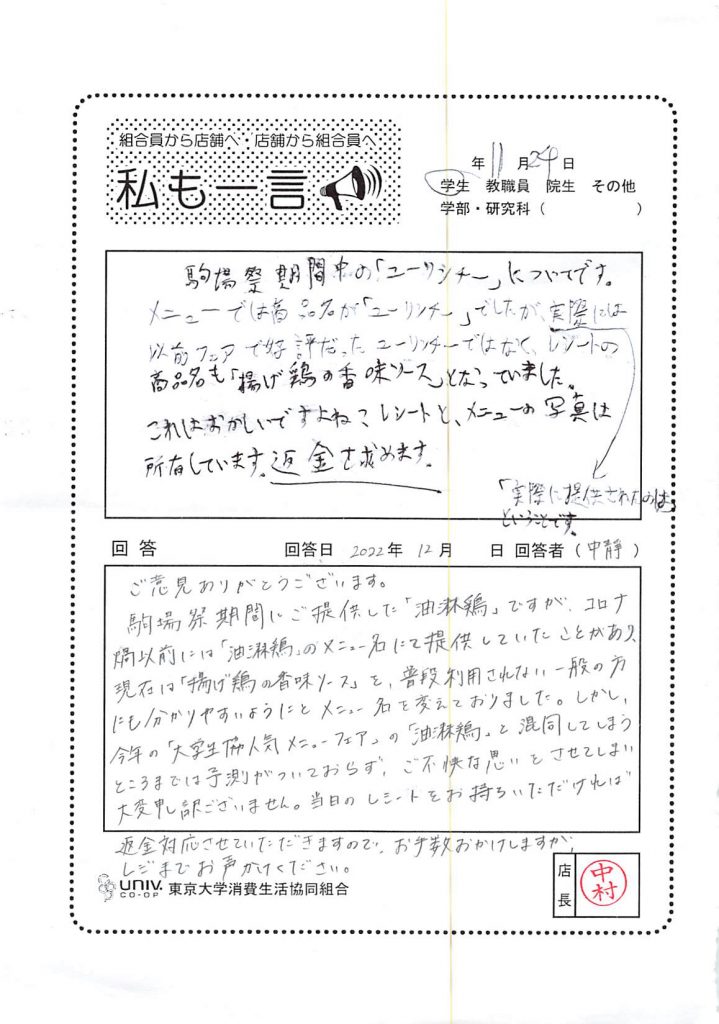 組合員から店舗へ・店舗から組合員へ
私も一言
年 11月 29日
学生 教職員 院生 その他
学部・研究科 ( )
駒場祭期間中の「ユーリンチー」についてです。
メニューでは商品名が「ユーリンチー」でしたが、実際には
以前フェアで好評だったユーリンチーではなく、レシートの
商品名も「揚げ鶏の香味ソース」となっていました。
これはおかしいですよね? レシートと、メニューの写真は
所有しています。返金を求めます。
「実際に提供されたのは」
ということです。
回答 回答日 2022年 12月 日 回答者 (中静)
ご意見ありがとうございます。
駒場祭期間にご提供した「油淋鶏」ですが、コロナ
禍以前には「油淋鶏」のメニュー名にて提供していたことがあり、
現在は「揚げ鶏の香味ソース」と、普段利用されない一般の方
にも分かりやすいようにとメニュー名を変えておりました。しかし、
今年の「大学生協人気メニューフェア」の「油淋鶏」と混同してしまう
ところまでは予測がついておらず、ご不快な思いをさせてしまい
大変申し訳ございません。当日のレシートをお持ちいただければ
返金対応させていただきますので、お手数おかけしますが、
レジまでお声がけください。
UNIV. CO-OP 東京大学消費生活協同組合
店長 中村